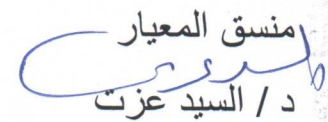 منسق المعيار
د / السيد عزت